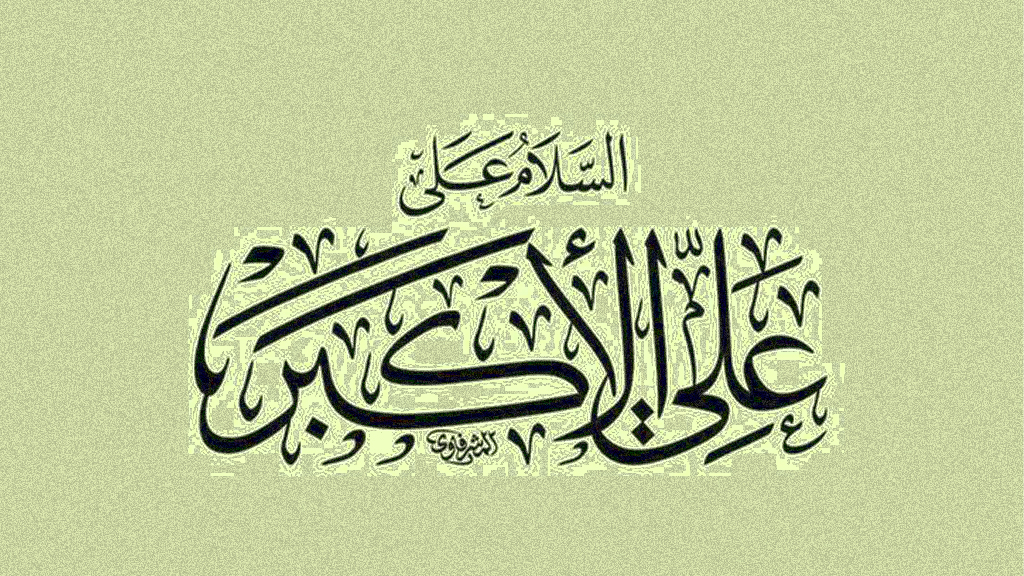 السَّلَامُ عَلَى
عَلِيٍّ الأَكْبَر
الشرفاوي